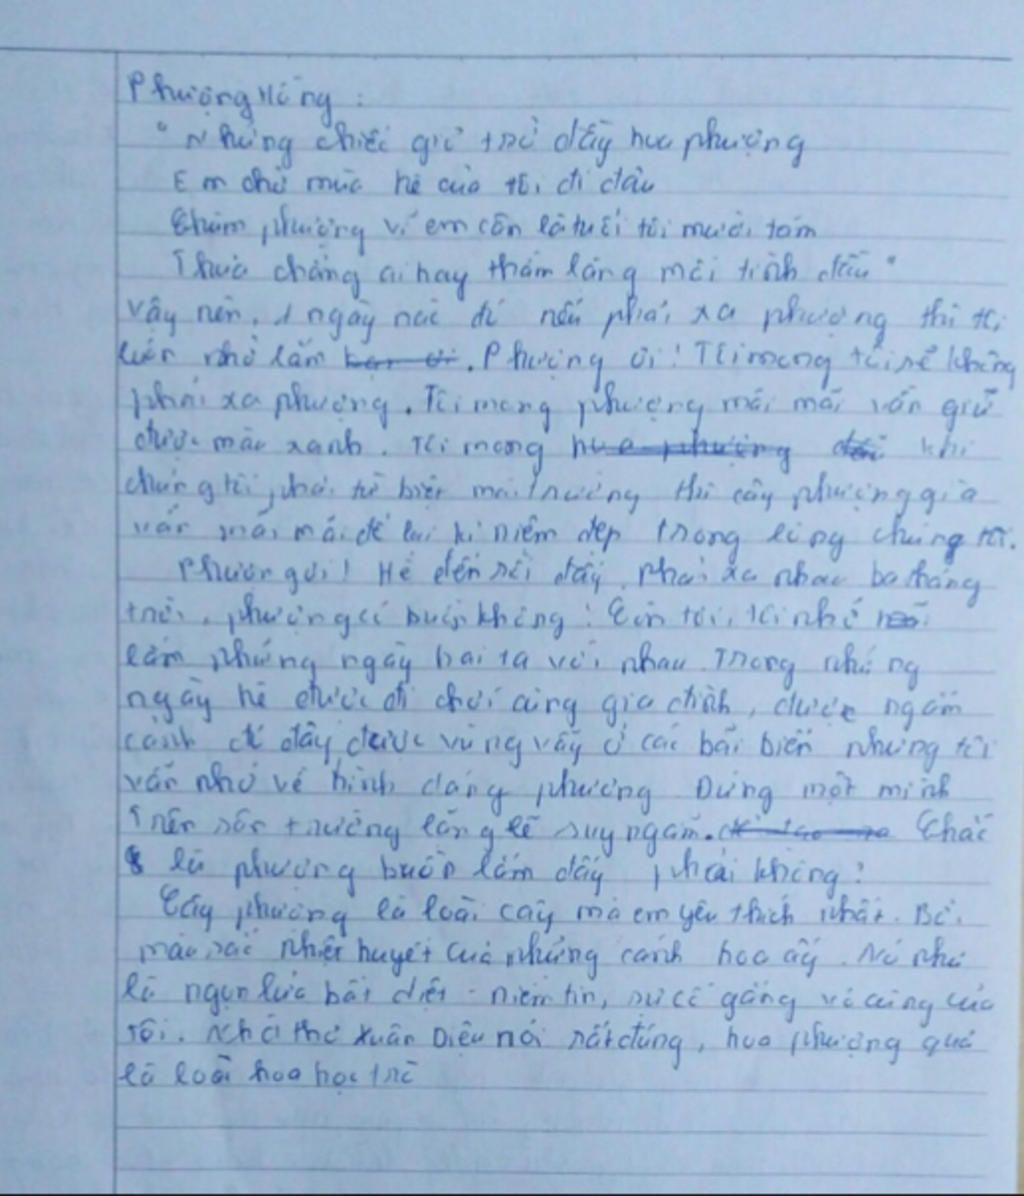 Phượng Hồng :
"Những chiếc giỏ trở đầy hoa phượng
Em chở mùa hè của tôi đi đâu
Chùm phượng vĩ em cần là tuổi tôi mười tám
Thuở chẳng ai hay thầm lặng mối tình đầu"
vậy nên, 1 ngày nào đó nếu phải xa phượng thì tôi
luôn nhớ lắm. Phượng ơi! Tôi mong tôi sẽ không
phải xa phượng. Tôi mong phượng mãi mãi vẫn giữ
được màu xanh. Tôi mong khi
chúng tôi phải từ biệt mái trường thì cây phượng già
vẫn mãi mãi để lại kỉ niệm đẹp trong lòng chúng tôi.
Phượng ơi! Hè đến rồi đấy, phải xa nhau ba tháng
trời, phượng có buồn không? Còn tôi, tôi nhớ
lắm những ngày hai ta với nhau. Trong những
ngày hè được đi chơi cùng gia đình, được ngắm
cảnh đó đây được vùng vẫy ở các bãi biển nhưng tôi
vẫn nhớ về hình dáng phượng Đứng một mình
trên sân trường lặng lẽ suy ngẫm. Chắc
là phượng buồn lắm đấy phải không?
Cây phượng là loài cây mà em yêu thích nhất. Bởi
màu sắc nhiệt huyết của những cánh hoa ấy. Nó như
là ngọn lửa bất diệt - niềm tin, sự cố gắng vô cùng của
tôi. Nhà thơ Xuân Diệu nói rất đúng, hoa phượng quả
là loài hoa học trò